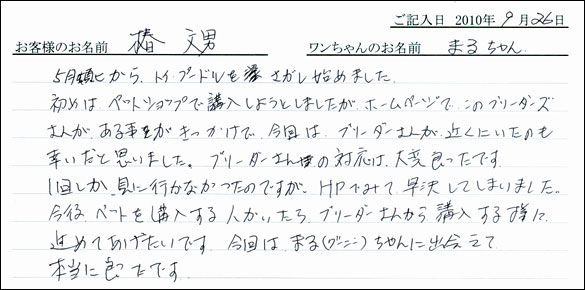 ご記入日 2010年 9月26日
お客様のお名前 椿 文男 ワンちゃんのお名前 まるちゃん
5月頃から、トイ・プードルをさがし始めました。
初めは、ペットショップで購入しようとしましたが、ホームページで、このブリーダーズ
さんが、ある事をがきっかけで、今回は、ブリーダーさんが、近くにいたのも
幸いだと思いました。ブリーダーさんの対応は、大変良ったです。
1回しか、見に行かなかったのですが、HPでみて、早決してしまいました。
今後、ペットを購入する人がいたら、ブリーダーさんから購入する様に、
近めてあげたいです。今回は、まる(グーニー)ちゃんに出会えて、
本当に良ったです。